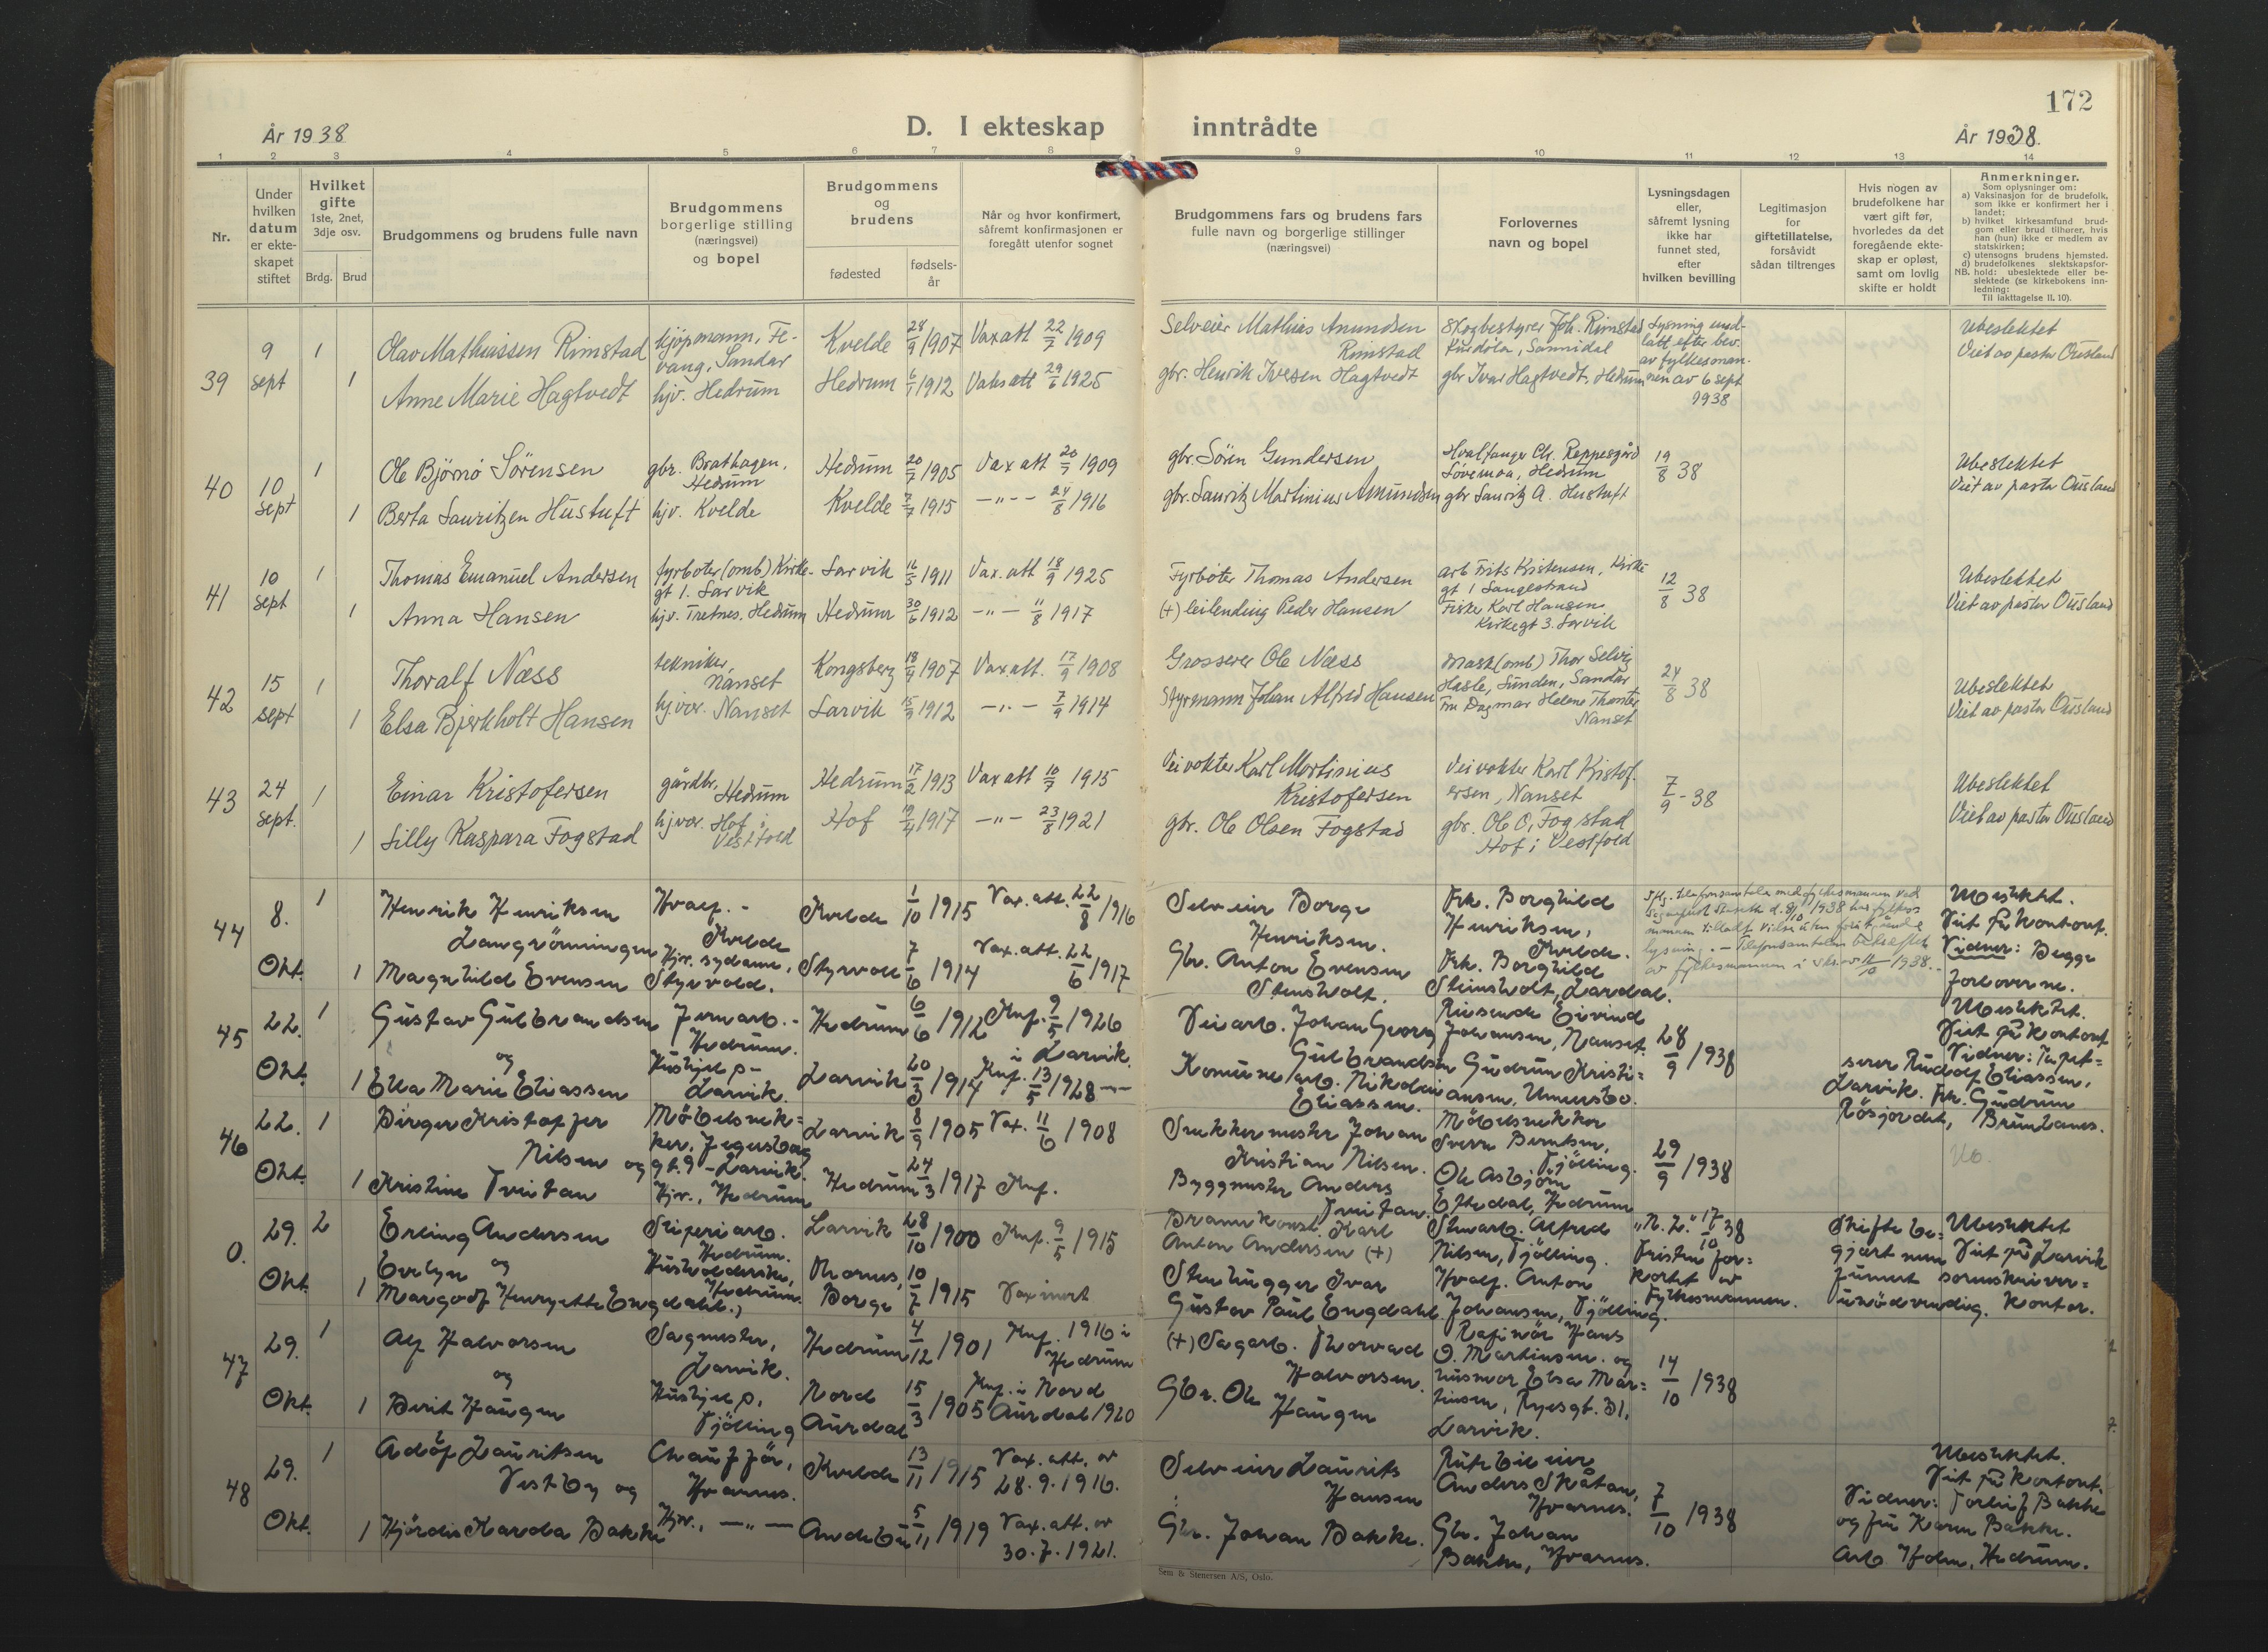 172
År 1938
D. I ekteskap inntrådte
År 1938.
1 2 3 4 5 6 7 8 9 10 11 12 13 14
Nr.
Under hvilken datum er ekteskapet stiftet
Hvilket gifte 1ste, 2net, 3dje osv.
Brdg. Brud
Brudgommens og brudens fulle navn
Brudgommens borgerlige stilling (næringsvei) og bopel
Brudgommens og brudens
fødested
fødsels-år
Når og hvor konfirmert, såfremt konfirmasjonen er foregått utenfor sognet
Brudgommens fars og brudens fars fulle navn og borgerlige stillinger (næringsvei)
Forlovernes navn og bopel
Lysningsdagen eller, såfremt lysning ikke har funnet sted, efter hvilken bevilling
Legitimasjon for giftetillatelse, forsåvidt sådan tiltrenges
Hvis nogen av brudefolkene har vært gift før, hvorledes da det foregående ekteskap er opløst, samt om lovlig skifte er holdt
Anmerkninger.
Som oplysninger om:
a) Vaksinasjon for de brudefolk, som ikke er konfirmert her i landet;
b) hvilket kirkesamfund brudgom eller brud tilhører, hvis han (hun) ikke er medlem av statskirken;
c) utensogns brudens hjemsted.
d) brudefolkenes slektskapsforhold: ubeslektede eller beslektede (se kirkebokens innledning:
NB.
Til iakttagelse II. 10).
39 9 sept 1 Olav Mathiassen Rimstad kjøpmann, Fevang, Sandar Kvelde 28/9 1907 Vaxatt 22/7 1909 Selveier Mathias Amundsen Rimstad Skogbestyrer Joh. Rimstad Kurdøla, Sannidal Lysning undlatt efter bev. av fylkesmannen av 6 sept 1938 Ubeslektet
1 Anne Marie Hagtvedt hjv. Hedrum Hedrum 6/1 1912 Vaks att 29/6 1925 gbr. Henrik Ivesen Hagtvedt gbr Ivar Hagtvedt, Hedrum Viet av pastor Ousland
40 10 sept 1 Ole Bjørnø Sörensen gbr. Brathagen, Hedrum Hedrum 20/7 1905 Vax att 20/7 1909 gbr. Sören Gundersen Hvalfanger Ch. Reppesgård Løvemoa, Hedrum 19/8 38 Ubeslektet
1 Berta Lauritzen Hustuft hjv. Kvelde Kvelde 7/7 1915 —"— 24/8 1916 gbr. Lauritz Martinius Amundsen gbr Lauritz A. Hustuft Viet av pastor Ousland
41 10 sept 1 Thomas Emanuel Andersen fyrbøter (omb) Kirkegt 1. Larvik Larvik 16/5 1911 Vax. att 18/9 1925 Fyrbøter Thomas Andersen arb Frits Kristensen, Kirkegt 1 Langestrand 12/8 38 Ubeslektet
1 Anna Hansen hjv. Tretnes. Hedrum Hedrum 30/6 1912 —"— 11/8 1917 (+) leilending Peder Hansen Fisker Karl Hansen Kirkegt 3. Larvik Viet av pastor Ousland
42 15 sept 1 Thoralf Næss tekniker, Nanset Kongsberg 18/9 1907 Vax att. 17/9 1908 Grosserer Ole Næss Mask (omb) Thor Selvig Hasle, Sunden, Sandar 24/8 38 Ubeslektet
1 Elsa Bjerkholt Hansen hjvær. Nanset Larvik 15/9 1912 —"— 7/9 1914 Styrmann Johan Alfred Hansen Fru Dagmar Helene Nanset Viet av pastor Ousland
43 24 sept. 1 Einar Kristofersen gårdbr. Hedrum Hedrum 17/2 1913 Vax att 10/7 1915 Veivokter Karl Martinius Kristofersen Veivokter Karl Kristofersen, Nanset 7/9 - 38 Ubeslektet
1 Lilly Kaspara Fogstad hjvær. Hof i Vestfold Hof 19/4 1917 —"— 23/8 1921 gbr. Ole Olsen Fogstad gbr. Ole O. Fogstad Hof i Vestfold Viet av pastor Ousland
44 8. Okt. 1 Henrik Henriksen Langrönningen Hvalf. - Kvelde Kvelde 1/10 1915 Vax. att. 22/8 1916 Selveier Borge Henriksen. Frk. Borghild Henriksen, Kvelde. Ubeslektet. Viet på kontoret.
1 Magnhild Evensen Hjv. sydame, Styrvold. Styrvoll 7/6 1914 Vax. att. 22/6 1917 Gbr. Anton Evensen Stensholt. Frk. Borghild Steinsholt, Lardal. Vidner: Begge forloverne.
45 22. Okt. 1 Gustav Gulbrandsen og Jernarb. - Hedrum. Hedrum 6/6 1912 Knf. 9/5 1926 i Larvik. Veiarb. Johan Georg Gulbrandsen Reisende Eivind Johansen, Nanset. 28/9 1938 Ubeslektet. Viet på kontoret
1 Ella Marie Eliassen Hushjelp - Larvik. Larvik 20/3 1914 Knf. 13/5 1928 —"— Komunearb. Nikolai Eliassen. Gudrun Kristiansen, Unnersbo. Vidner: Inspektører Rudolf Eliassen, Larvik. Frk. Gudrun Røsjordet, Brunlanes.
46 22. Okt. 1 Birger Kristoffer Nilsen og Möbelsnekker, Jegersborggt. 9 - Larvik. Larvik 8/9 1905 Vax. 11/6 1908 Snekkermester Johan Kristian Nilsen. Möbelsnekker Sverre Berntsen, Tjölling. 29/9 1938 Ub.
1 Kristine Tveitan Hjv., Hedrum Hedrum 24/3 1917 Knf. Byggmester Anders Tveitan. Ole Asbjörn Eftedal, Hedrum
0. 29. Okt. 2 Erling Andersen og Sliperiarb. Hedrum. Larvik 28/10 1900 Knf. 9/5 1915 Brannkonst. Karl Anton Andersen (+) Stenarb. Alfred Nilsen, Tjölling. "N. L." 17/10 38 Fristen forkortet av Fylkesmannen. Skifte begjært men funnet unödvendig. Ubeslektet Viet på Larvik sorenskriverkontor.
1 Evelyn Margodf Henryette Engdahl. Husholderske, Hedrum. Borge 10/7 1915 Stenhugger Ivar Gustav Paul Engdahl Hvalf. Anton Johansen, Tjölling.
47 29. Okt. 1 Alf Halvorsen og Sagmester, Larvik. Hedrum 4/12 1901 Knf. 1916 i Hedrum (+) Sagarb. Thorvad Halvorsen. Rafinör Hans O. Martinsen. og husmor Elsa Martinsen, Ryesgt. 31, Larvik. 14/10 1938
1 Berit Haugen Hushjelp, Tjölling Nord Aurdal 15/3 1905 Knf. i Nord Aurdal 1920 Gbr. Ole Haugen
48 29. Okt. 1 Adolf Lauritsen Vestby og Chaufför, Hvarnes. Kvelde 13/11 1915 Vax. att. av 28.9.1916. Selveier Laurits Hansen Rutebileier Anders Skåtan, Hvarnes. 7/10 1938 Ubeslektet. Viet på kontoret.
1 Hjördis Harda Bakke Hjv., —"— Andebu 5/11 1919 Vax. att. av 30.7.1921. Gbr. Johan Bakke. Gbr. Johan Bakke, Hvarnes. Vidner: Torleif Bakke og fru Karen Bakke. Arb Holm, Hedrum.
Sem & Stenersen A/S, Oslo.